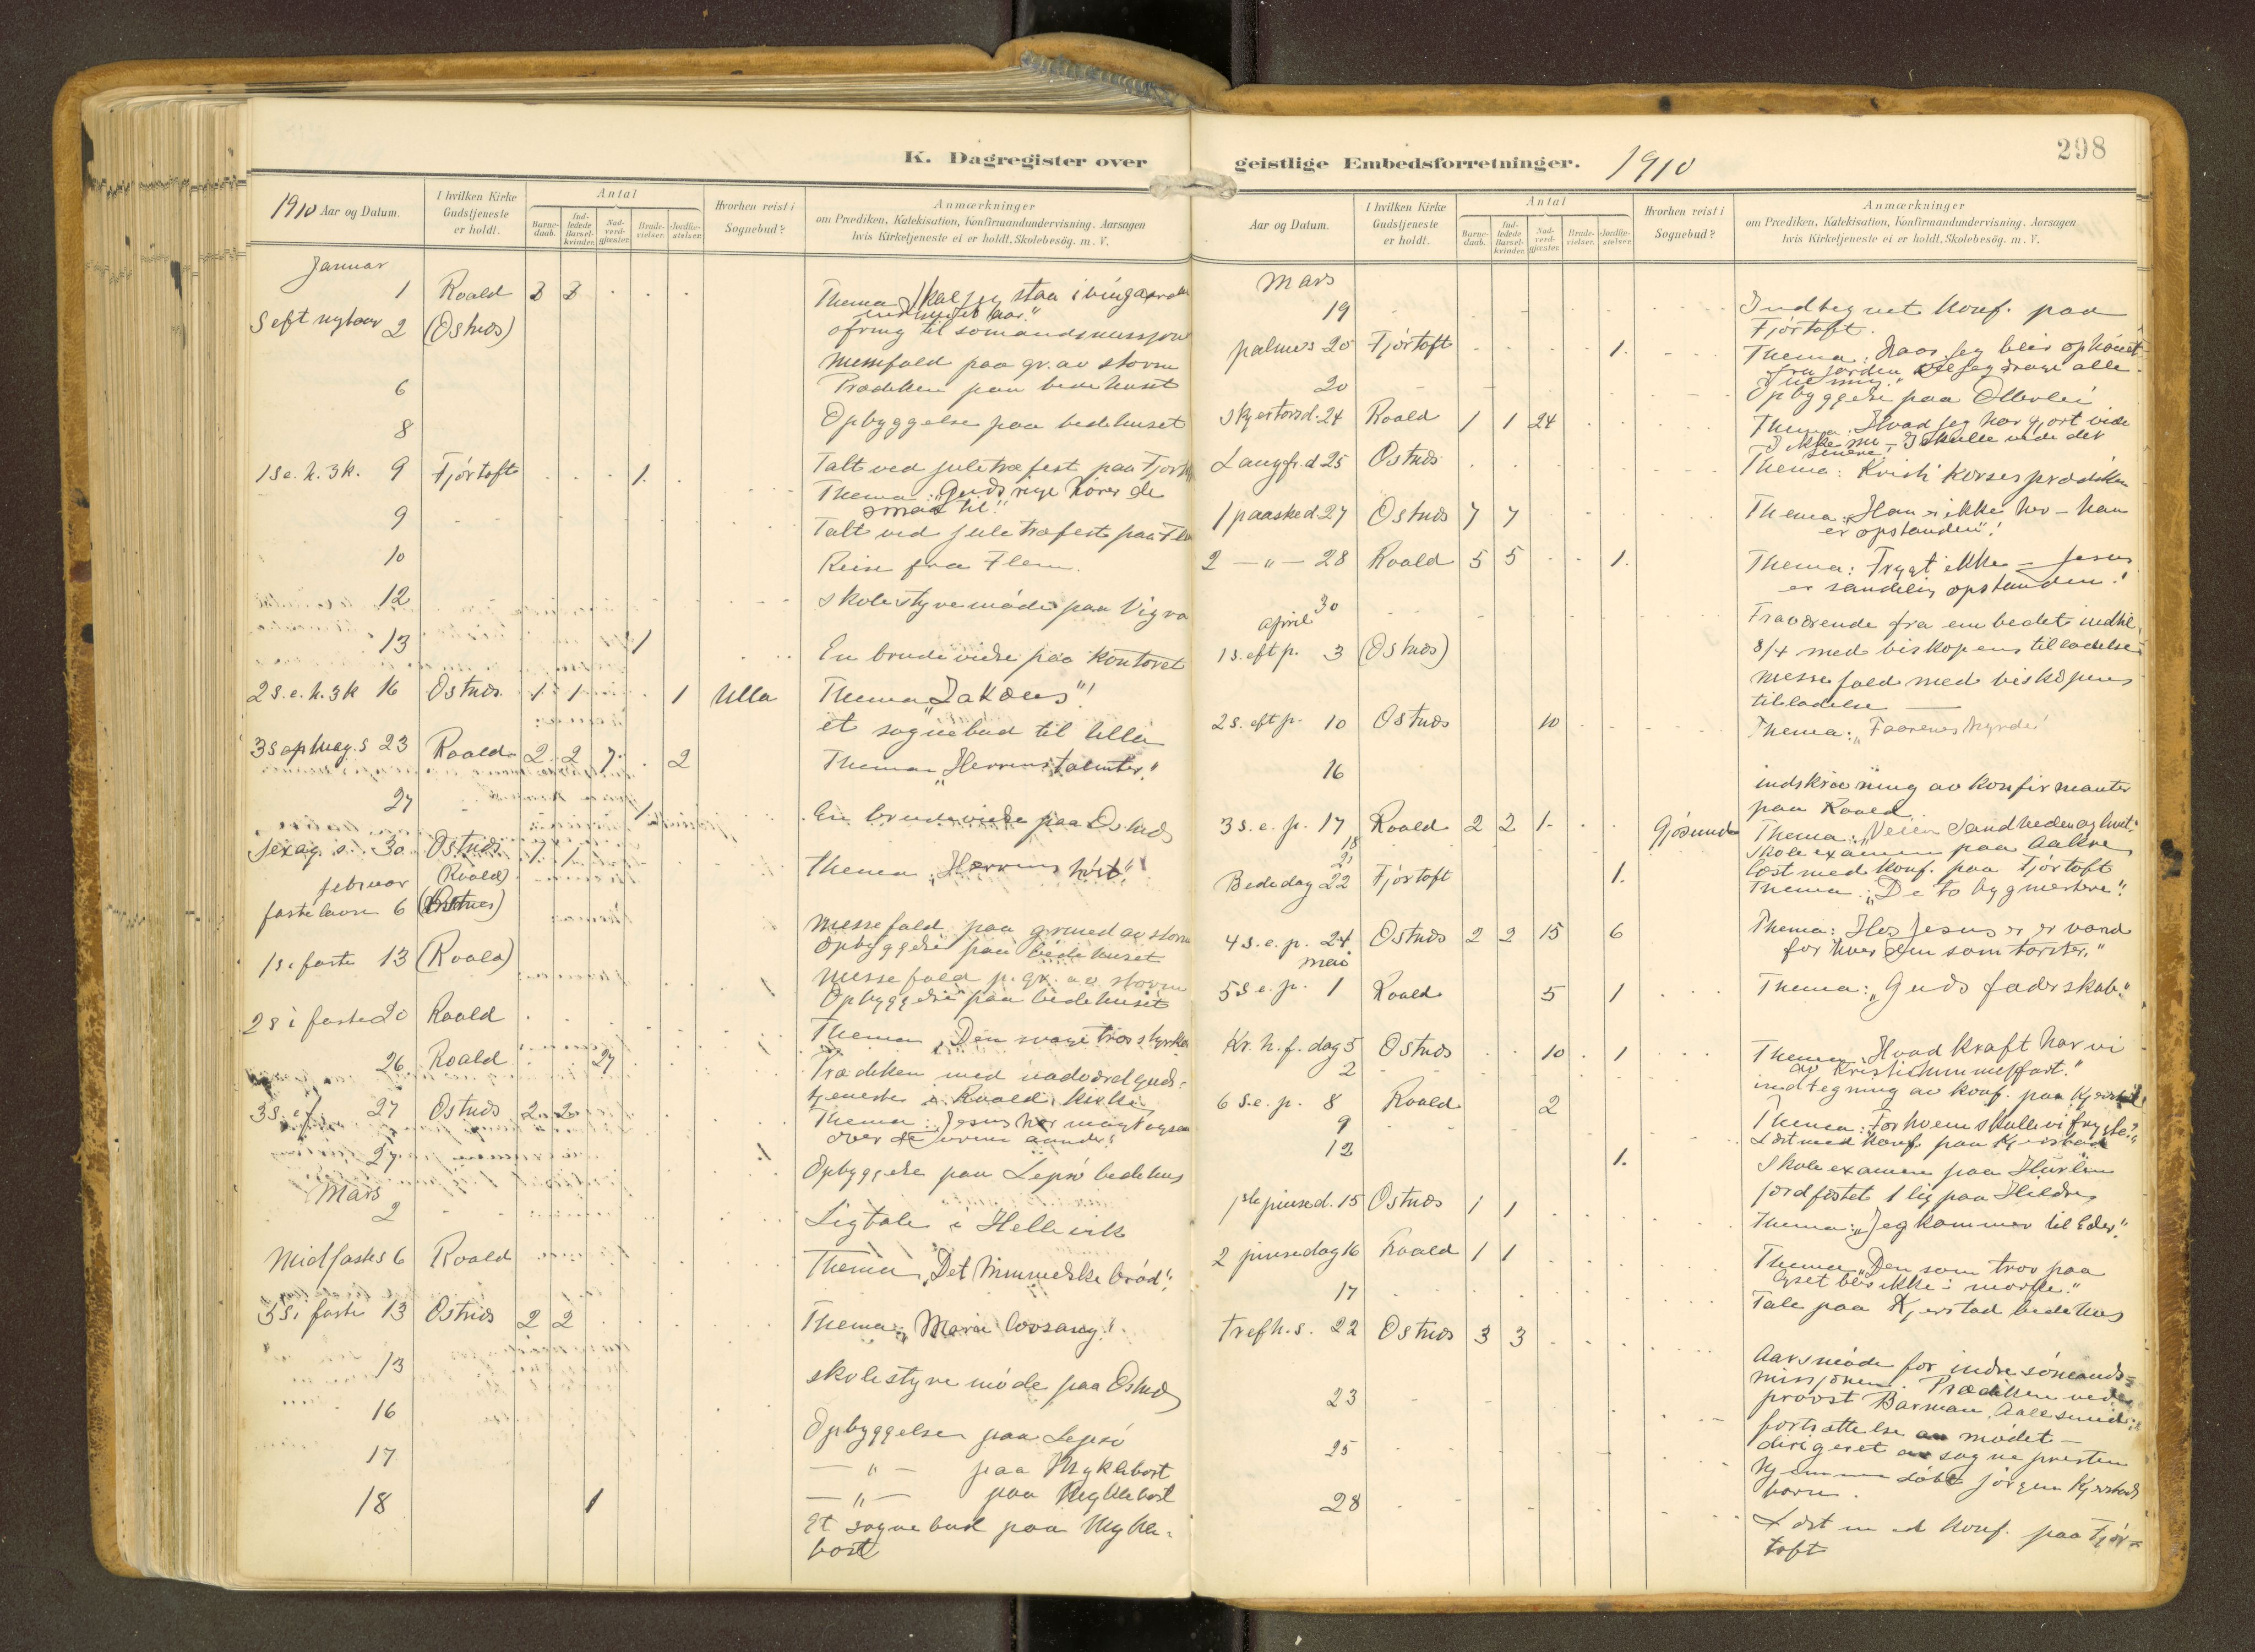 K. Dagregister over
1910 Aar og Datum.
I hvilken Kirke Gudstjeneste er holdt.
Antal
Barne-daab.
Ind-ledede Barsel-kvinder.
Nad-verd-gjester.
Brude-vielser.
Jordfæ-stelser.
Hvorhen reist i Sognebud?
Anmærkninger
om Prædiken, Katekisation, Konfirmandundervisning. Aarsagen
hvis Kirketjeneste ei er holdt. Skolebesøg. m. V.
Januar
1 Roald 3 3 Thema Skal jeg staa i vingaarden
S eft nytaar 2 (Østnes) ofring til sømandsmissjon
Messefald paa gr. av storm
6 Prædiken paa bedehuset
8 Opbyggelse paa bedehuset
1 s e. h. 3 k. 9 Fjørtoft 1. Talt ved juletræfest paa Fjørtoft
Thema: "Guds rige hører de
smaa til."
9 Talt ved juletræfest paa Flem
10 Reise fra Flem.
12 Skolestyremøde paa Vigra
13 1 En brudevielse paa kontoret
2 s. e. h. 3 k 16 Østnes 1 1 1 Ulla Thema "Zakæus"!
et sognebud til Ulla
3 s op Mag. s 23 Roald 2 2 7 2 Thema "Herrens talenter."
27 1 En brudevielse paa Østnes
Sexag. s. 30 Østnes 1 1 Thema "Herrens høst"!
februar (Roald)
fastelavn 6 Messefald paa grund av storm
Opbyggelse paa bedehuset
1 s i faste 13 (Roald) Messefald p. gr. av storm
Opbyggelse paa bedehuset
2 s i faste 20 Roald Thema "Den svage tros styrke
26 Roald 27 Prædiken med nadverdguds-
tjeneste i Roald kirke
3 s. e f. 27 Østnes 2 2 Thema: Jesus har magt ogsaa
over de urene aander.
27 Opbyggelse paa Lepsø bedehus
Mars
2 Ligtale i Hellevik
Midfastes 6 Roald Thema "Det himmelske brød".
5 s i faste 13 Østnes 2 2 Thema: "Maria lovsang"!
13 skolestyremøde paa Østnes
16 Opbyggelse paa Lepsø
17 — " — paa Myklebost
18 1 — " — paa Myklebost
Et sognebud paa Mykle-
bost
geistlige Embedsforretninger. 1910
298
Aar og Datum.
I hvilken Kirke Gudstjeneste er holdt.
Antal
Barne-daab.
Ind-ledede Barsel-kvinder.
Nad-verd-gjester.
Brude-vielser.
Jordfæ-stelser.
Hvorhen reist i Sognebud?
Anmærkninger
om Prædiken, Katekisation, Konfirmandundervisning. Aarsagen
hvis Kirketjeneste ei er holdt. Skolebesøg. m. V.
Mars
19 Indtegnet konf. paa
Fjørtoft.
palmes 20 Fjørtoft 1. Thema: Naar jeg blir ophøiet
fra jorden vil jeg drage alle
til mig."
20 Opbyggelse paa Ullerlei
Skjertorsd. 24 Roald 1 1 24 Thema: Hvad jeg har gjort vide
I ikke nu – I skulle vide det
senere!
Langfr. d 25 Østnes Thema: Kristi korses prædiken
1 paasked 27 Østnes 7 7 Thema: "Han er ikke her – han
er opstanden"!
2 — " — 28 Roald 5 5 1. Thema: Frygt ikke – Jesus
er sandelig opstanden!
30 Fraværende fra embedet indtil
april 8/4 med biskopens tilladelse
1 s. eft p. 3 (Østnes) Messefald med biskopens
tilladelse —
2 s. eft p. 10 Østnes 10 Thema: "Faarenes hyrde!
16 indskrivning av konfirmanter
paa Roald
3 s. e. p. 17 Roald 2 2 1 Gjøsund Thema: "Veien Sandheden og livet."
18 Skoleexamen paa Aakre
21 læst med konf. paa Fjørtoft
Bededag 22 Fjørtoft 1. Thema: "De to bygmestere".
4 s. e. p. 24 Østnes 2 2 15 6 Thema: Hos Jesus er er vand
for hver den som tørster."
mai
5 s e. p. 1 Roald 5 1 Thema: "Guds faderskab".
Kr. h. f. dag 5 Østnes 10 1 Thema "Hvad kraft har vi
av Kristi himmelfart."
2 indtegning av konf. paa Kjerstad
6 s. e. p. 8 Roald 2 Thema: For hvem skulle vi frygte?
9 Læst med konf. paa Kjerstad
12 1. Skoleexamen paa
jordfæstet 1 lig paa Hildre
1ste pinsed. 15 Østnes 1 1 Thema: "Jeg kommer til Eder."
2 pinsedag 16 Roald 1 1 Thema "Den som tror paa
lyset blir ikke i mørke."
17 Tale paa Kjerstad bedehus
Trefh. s. 22 Østnes 3 3 Aarsmøde for indre sømands-
missjonen. Prædiken ved
provst Barman Aalesund
23 fortsættelse av mødet –
dirigeret av sognepresten
25 Hjemmedøbt Jørgen Kjerstads
barn.
28 Læst med konf. paa Fjør-
toft